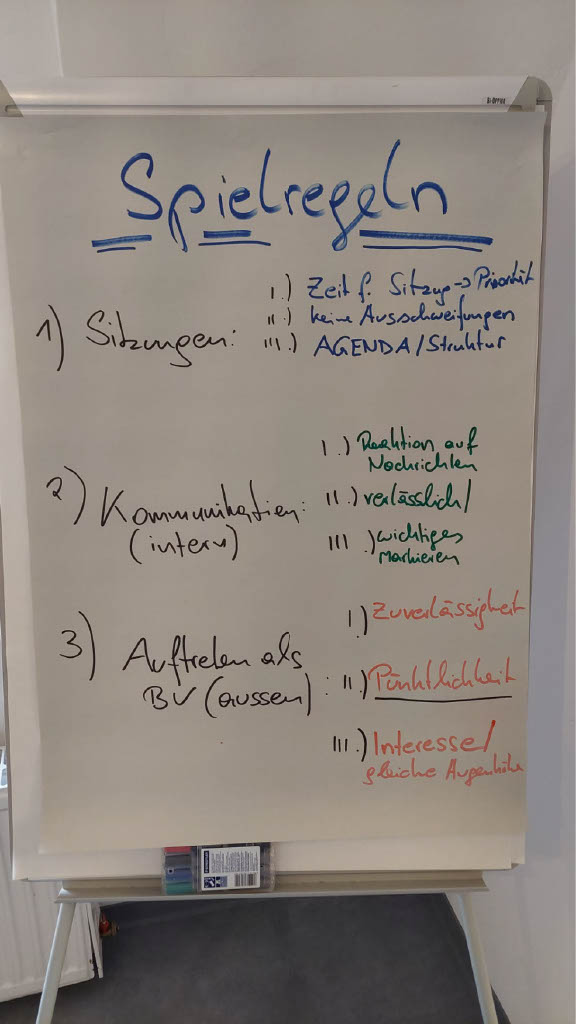 BI-OFFICE
Spielregeln
1) Sitzungen:
I.) Zeit f. Sitzung -> Priorität
II.) keine Ausschweifungen
III.) AGENDA/Struktur
2) Kommunikation:
(intern)
I.) Reaktion auf
Nachrichten
II.) verlässlich/
III.) wichtiges
markieren
3) Auftreten als
BV (aussen):
I.) Zuverlässigkeit
II.) Pünktlichkeit
III.) Interesse/
gleiche Augenhöhe